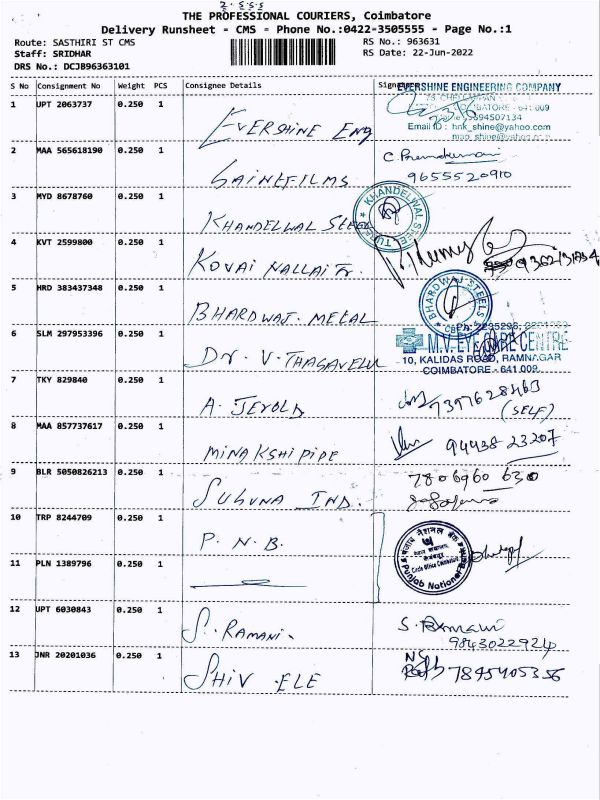 2.555
THE PROFESSIONAL COURIERS, Coimbatore
Delivery Runsheet - CMS - Phone No.:0422-3505555 - Page No.:1
Route: SASTHIRI ST CMS
RS No.: 963631
Staff: SRIDHAR
RS Date: 22-Jun-2022
DRS No.: DCJB96363101
S No Consignment No Weight PCS Consignee Details Signature
EVERSHINE ENGINEERING COMPANY
1 UPT 2063737 0.250 1 EVERSHINE ENG
9894507134
Email ID : hnk_shine@yahoo.com
2 MAA 565618190 0.250 1 SAINEFILMS
C. Premakumari
9655520910
3 MYD 8678760 0.250 1 KHANDELWAL STEEL
KHANDELWAL STEEL
4 KVT 2599800 0.250 1 KOVAI NALLAI Tr.
5 HRD 383437348 0.250 1 BHARDWAJ. METAL
BHARDWAJ STEELS
CBE
6 SLM 297953396 0.250 1 Dr. V. THAGAVELU
M.V. EYE CARE CENTRE
10, KALIDAS ROAD, RAMNAGAR
COIMBATORE - 641 009.
7 TKY 829840 0.250 1 A. JEVOLD
7397628463
(SELF)
8 MAA 857737617 0.250 1 MINAKSHI PIPE
94438 23207
9 BLR 5050826213 0.250 1 SUGUNA IND.
7806960 630
10 TRP 8244709 0.250 1 P. N. B.
पंजाब नैशनल बैंक
Circle Office Coimbatore
Punjab National Bank
11 PLN 1389796 0.250 1
12 UPT 6030843 0.250 1 S. RAMANI.
S. Ramani
9843022924
13 JNR 20201036 0.250 1 SHIV ELE
7845405356